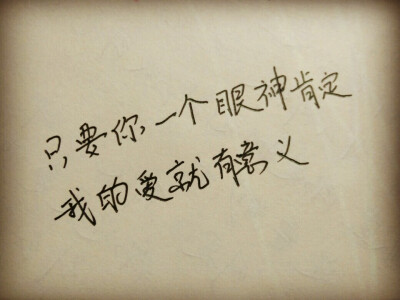 只要你一个眼神肯定
我的爱就有意义